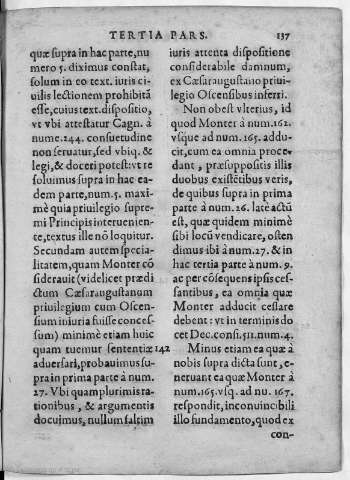 TERTIA PARS.
137
quæ supra in hac parte, nu
mero 5. diximus constat,
solum in eo text. iuris ci-
uilis lectionem prohibitā
esse, cuius text. dispositio,
vt vbi attestatur Cagn. à
nume. 244. consuetudine
non seruatur, sed vbiq. &
legi, & doceri potest: vt re
soluimus supra in hac ea-
dem parte, num. 5. maxi-
mè quia priuilegio supre-
mi Principis interuenien-
te, textus ille nō loquitur.
Secundam autem specia-
litatem, quam Monter cō
siderauit (videlicet prædi
ctum Cæsaraugustanum
priuilegium cum Oscen-
sium iniuria fuisse conces-
sum) minimè etiam huic
quam tuemur sententiæ
aduersari, probauimus su-
pra in prima parte à num.
27. Vbi quam plurimis ra-
tionibus, & argumentis
docuimus, nullum saltim
iuris attenta dispositione
considerabile damnum,
ex Cæsaraugustano priui-
legio Oscensibus inferri.
Non obest vlterius, id
quod Monter à num. 162.
vsque ad num. 165. addu-
cit, cum ea omnia proce-
dant, præsuppositis illis
duobus existētibus veris,
de quibus supra in prima
parte à num. 26. latè actū
est, quæ quidem minimè
sibi locū vendicare, osten
dimus ibi à num. 27. & in
hac tertia parte à num. 9.
ac per cōsequens ipsis ces-
santibus, ea omnia quæ
Monter adducit cessare
debent: vt in terminis do
cet Dec. consi. 511. num. 4.
142 Minus etiam ea quæ à
nobis supra dicta sunt, e-
neruant ea quæ Monter à
num. 165. vsq. ad nu. 167.
respondit, inconuincibili
illo fundamento, quod ex
con-